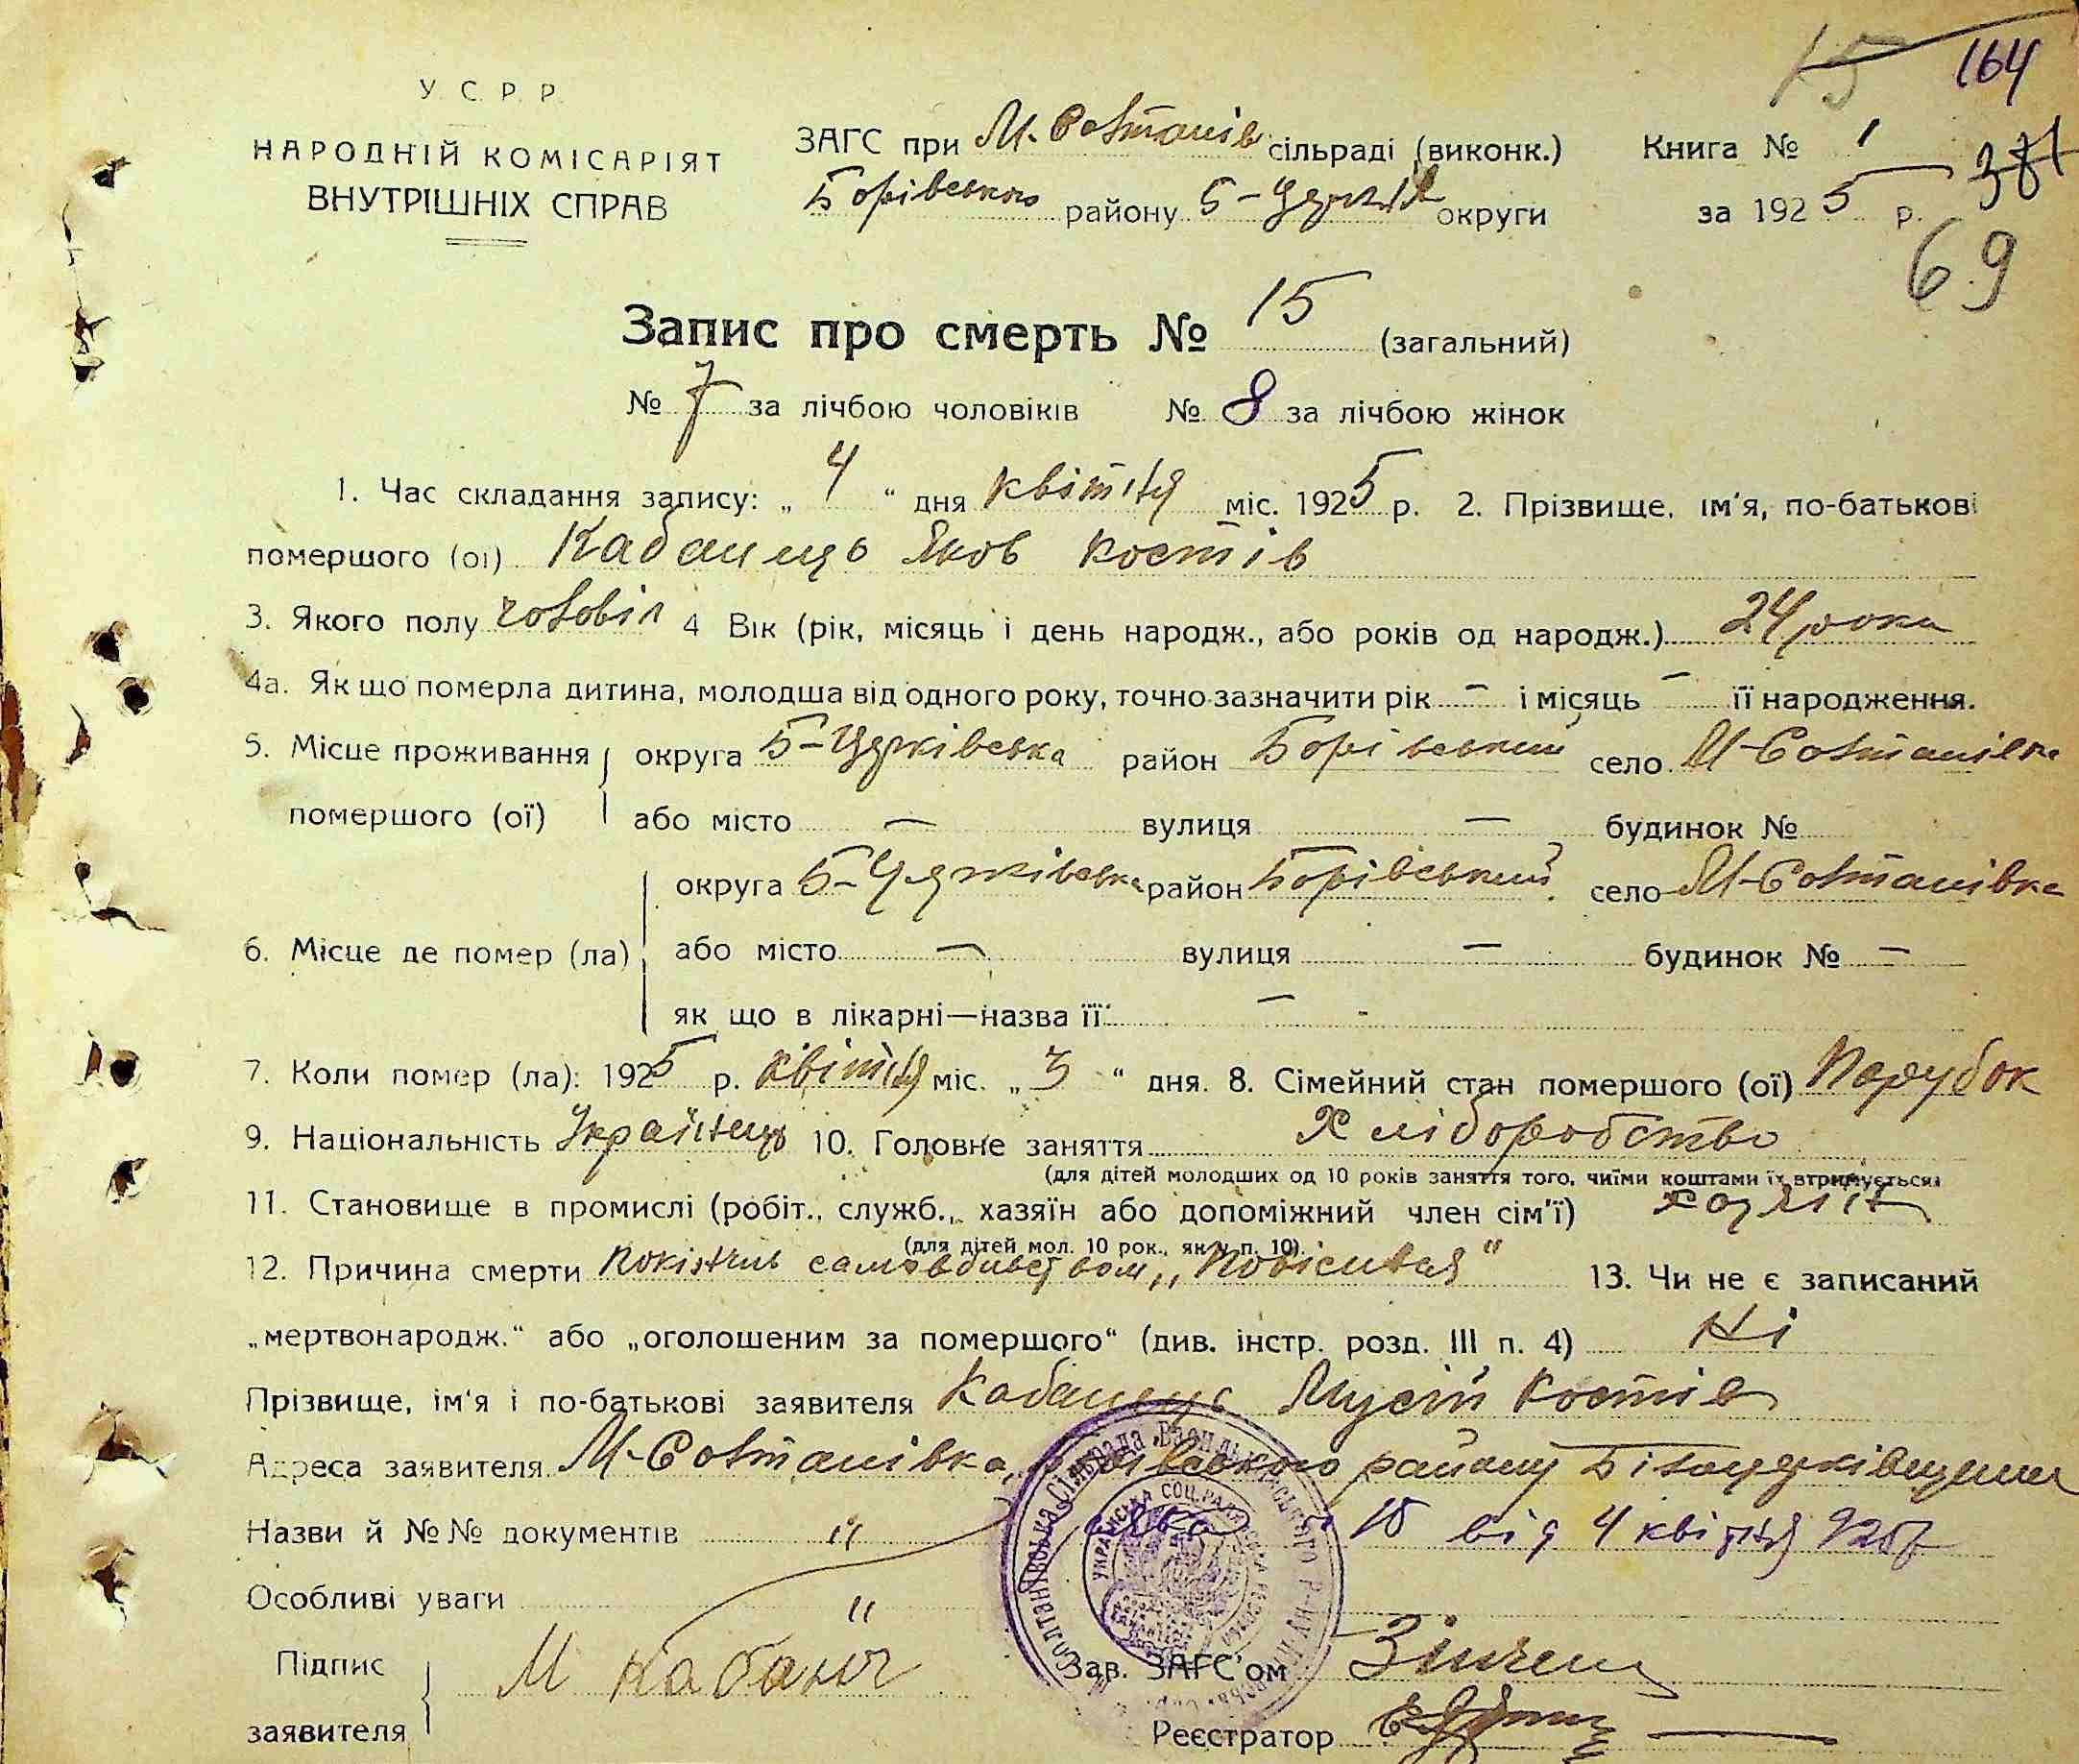 15 164
У. С. Р. Р.
НАРОДНІЙ КОМІСАРІЯТ
ВНУТРІШНІХ СПРАВ
ЗАГС при М. Солтанів сільраді (виконк.)
Борівського району Б-Церків округи
Книга № 1
за 1925 р.
69
Запис про смерть № 15 (загальний)
№ 7 за лічбою чоловіків № 8 за лічбою жінок
1. Час складання запису: „ 4 “ дня квітня міс. 1925 р. 2. Прізвище, ім'я, по-батькові
помершого (ої) Кабанець Яков Костів
3. Якого полу чоловік 4 Вік (рік, місяць і день народж., або років од народж.) 24 рока
4а. Як що померла дитина, молодша від одного року, точно зазначити рік – і місяць – її народження.
5. Місце проживання округа Б-Церківська район Борівський село М-Солтанівка
помершого (ої) або місто — вулиця — будинок №
округа Б-Церківська район Борівський село М-Солтанівка
6. Місце де помер (ла) або місто — вулиця — будинок № —
як що в лікарні—назва її: —
7. Коли помер (ла): 1925 р. квітня міс. „ 3 “ дня. 8. Сімейний стан помершого (ої) Парубок
9. Національність Українець 10. Головне заняття Хліборобство
(для дітей молодших од 10 років заняття того, чиїми коштами їх втримується)
11. Становище в промислі (робіт., служб., хазяїн або допоміжний член сім'ї) хазяїн
(для дітей мол. 10 рок., як у п. 10).
12. Причина смерти покінчив самовбивством „Повісився" 13. Чи не є записаний
„мертвонародж.“ або „оголошеним за помершого“ (див. інстр. розд. III п. 4) Ні
Прізвище, ім'я і по-батькові заявителя Кабанець Мусій Костів
Адреса заявителя М-Солтанівка, Борівського району Білоцерківщини
Назви й №№ документів " 15 від 4 квітня 925р
Особливі уваги "
Підпис
заявителя М Кабанец
Зав. ЗАГС'ом Зінчен
Реєстратор
Солтанівська Сільрада Васильківського Р-ну
УКРАЇНСЬКА СОЦ. РАДЯНСЬКА РЕСПУБЛІКА